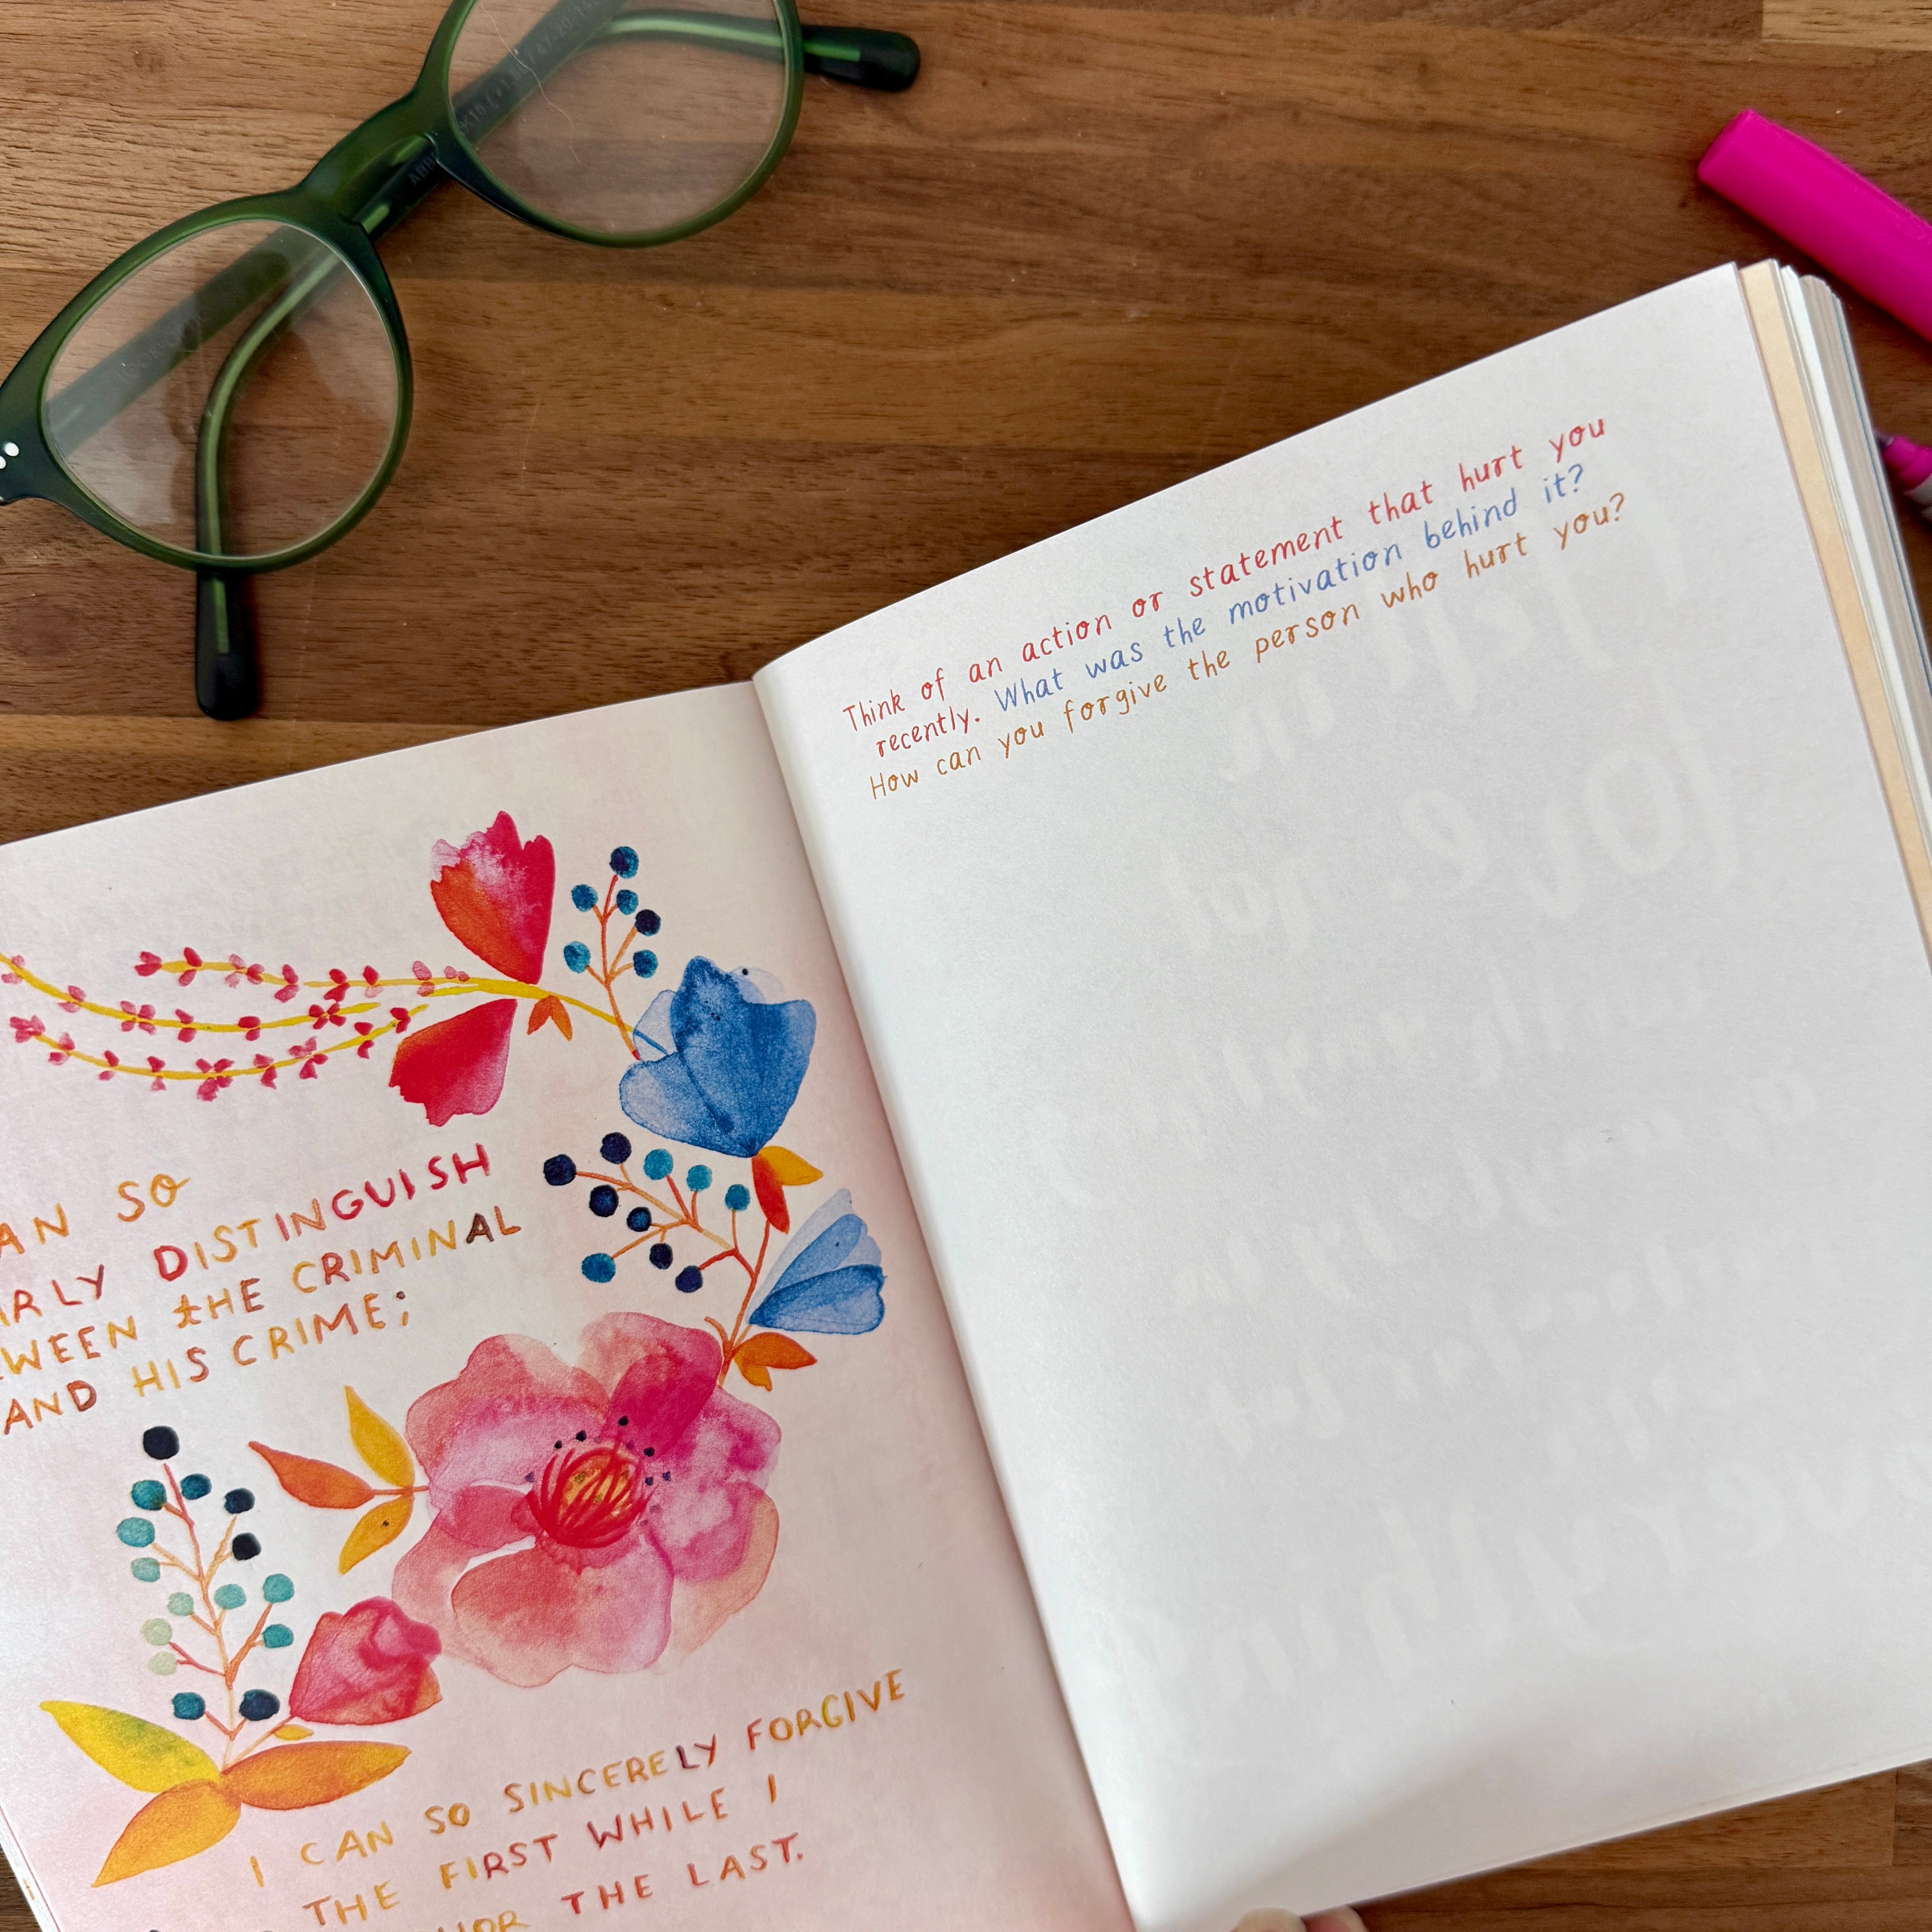 SO
DISTINGUISH
THE CRIMINAL
AND HIS CRIME;
I CAN SO SINCERELY FORGIVE
THE FIRST WHILE I
THE LAST.
Think of an action or statement that hurt you
recently. What was the motivation behind it?
How can you forgive the person who hurt you?